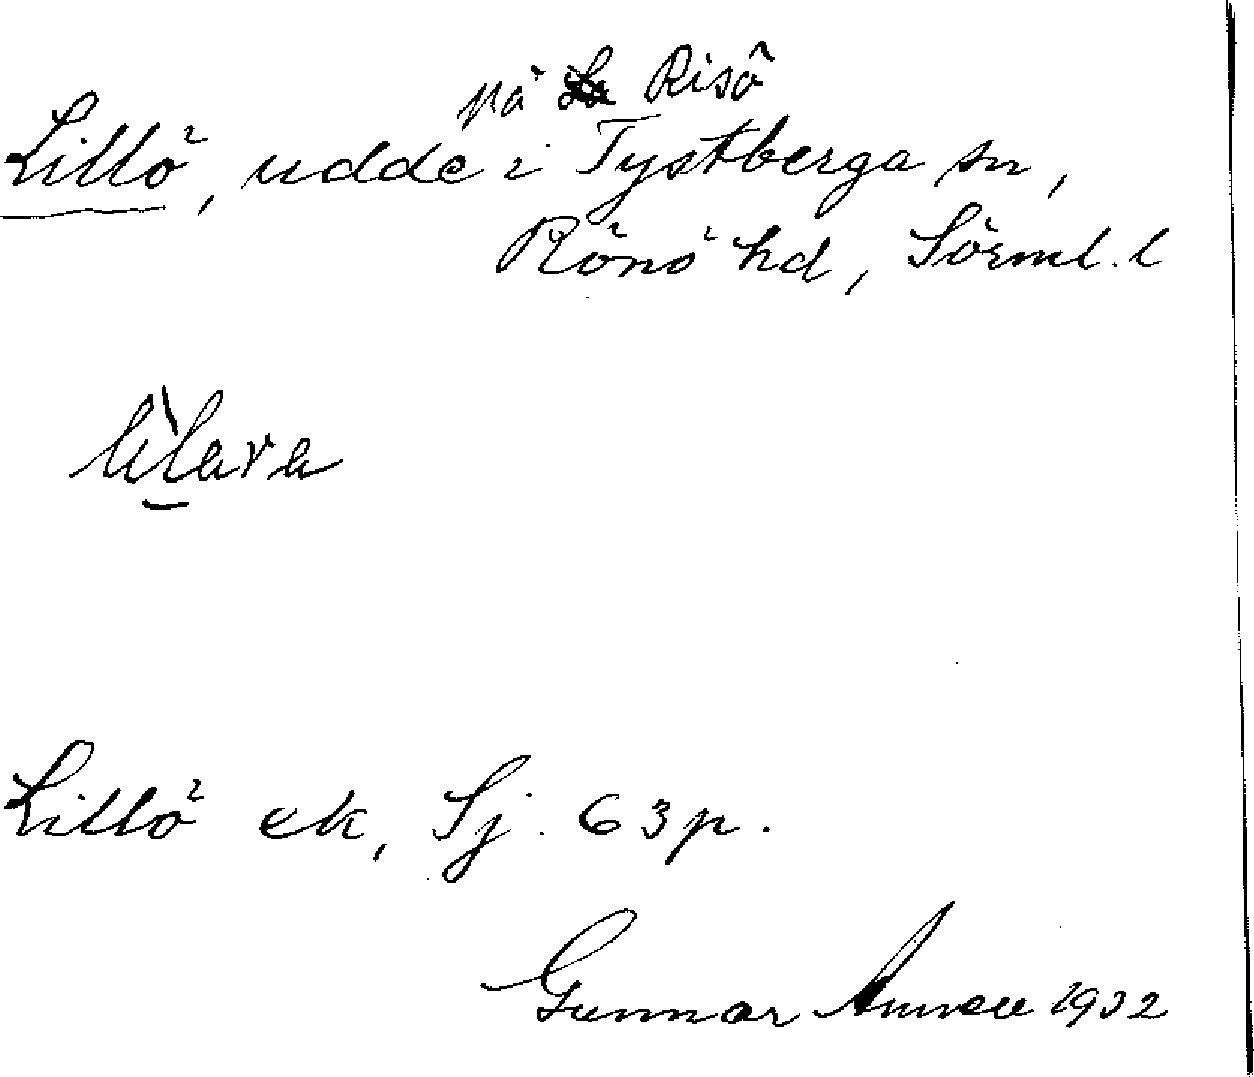 på Risö
Lillö, udde i Tystberga sn,
Rönö hd, Sörml. l
Lillö ek, Sj. 63 p.
Gunnar 1932